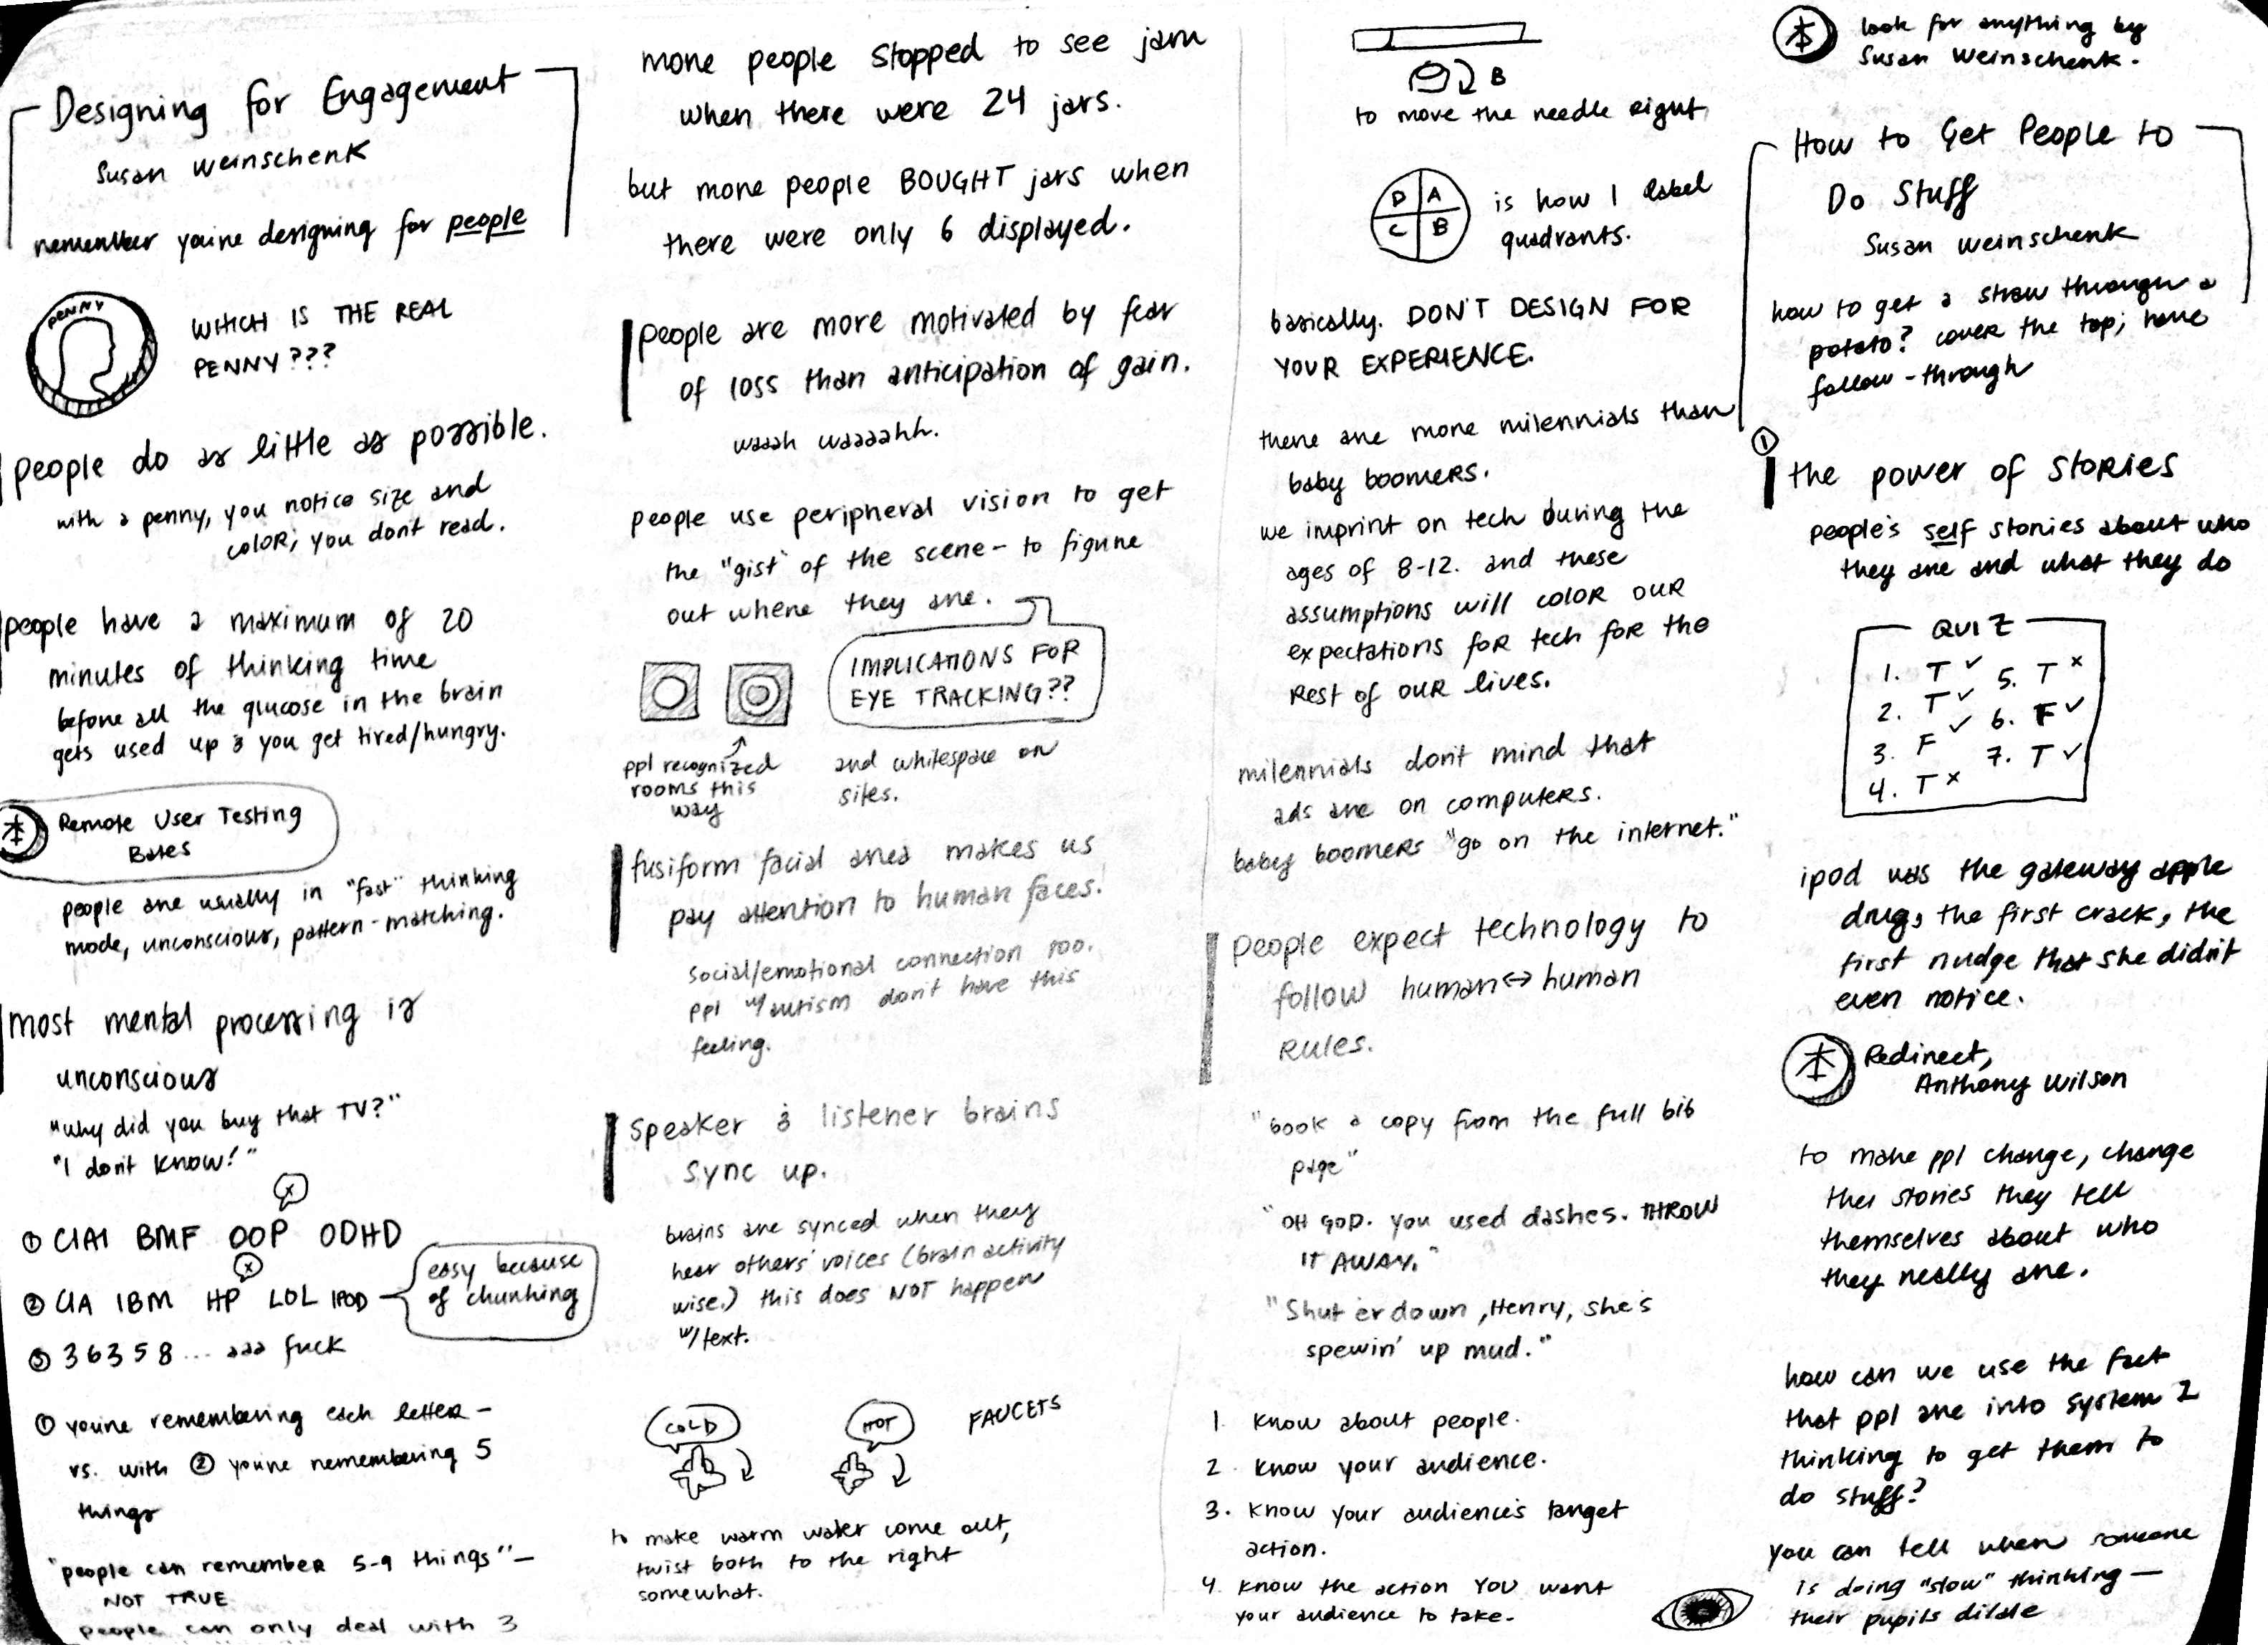 Designing for Engagement
Susan Weinschenk
remember you're designing for people
PENNY
WHICH IS THE REAL
PENNY???
people do as little as possible.
with a penny, you notice size and
color; you don't read.
people have a maximum of 20
minutes of thinking time
before all the glucose in the brain
gets used up & you get tired/hungry.
Remote User Testing
Bates
people are usually in "fast" thinking
mode, unconscious, pattern-matching.
most mental processing is
unconscious
"why did you buy that TV?"
"I don't know!"
x
① CIAI BMF OOP ODHD
x
② CIA IBM HP LOL IPOD
easy because
of chunking
③ 36358... aaa fuck
① you're remembering each letter –
vs. with ② you're remembering 5
things
"people can remember 5-9 things" –
NOT TRUE
people can only deal with 3
more people stopped to see jam
when there were 24 jars.
but more people BOUGHT jars when
there were only 6 displayed.
people are more motivated by fear
of loss than anticipation of gain.
waaah waaaahh.
people use peripheral vision to get
the "gist" of the scene – to figure
out where they are.
IMPLICATIONS FOR
EYE TRACKING??
ppl recognized
rooms this
way
and whitespace on
sites.
fusiform facial area makes us
pay attention to human faces!
social/emotional connection too.
ppl w/autism don't have this
feeling.
speaker & listener brains
sync up.
brains are synced when they
hear others' voices (brain activity
wise.) this does NOT happen
w/text.
COLD
HOT
FAUCETS
to make warm water come out,
twist both to the right
somewhat.
B
to move the needle right
D A
C B
is how I label
quadrants.
basically. DON'T DESIGN FOR
YOUR EXPERIENCE.
there are more milennials than
baby boomers.
we imprint on tech during the
ages of 8-12. and these
assumptions will color our
expectations for tech for the
rest of our lives.
milennials don't mind that
ads are on computers.
baby boomers "go on the internet."
people expect technology to
follow human↔human
rules.
"book a copy from the full bib
page"
"OH GOD. you used dashes. THROW
IT AWAY."
"Shut 'er down, Henry, she's
spewin' up mud."
1. Know about people.
2. Know your audience.
3. Know your audience's target
action.
4. Know the action YOU want
your audience to take.
look for anything by
Susan Weinschenk.
How to Get People to
Do Stuff
Susan Weinschenk
how to get a straw through a
potato? cover the top; have
follow-through
①
the power of stories
people's self stories about who
they are and what they do
QUIZ
1. T ✓ 5. T x
2. T ✓ 6. F ✓
3. F ✓ 7. T ✓
4. T x
ipod was the gateway apple
drug, the first crack, the
first nudge that she didn't
even notice.
Redirect,
Anthony Wilson
to make ppl change, change
the stories they tell
themselves about who
they really are.
how can we use the fact
that ppl are into system 2
thinking to get them to
do stuff?
you can tell when someone
is doing "slow" thinking –
their pupils dilate